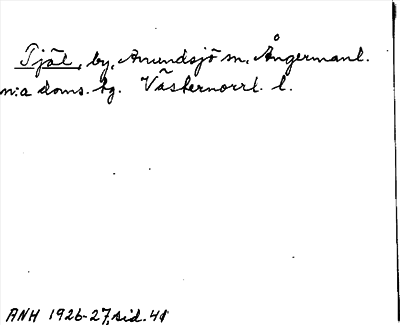 Tjäl, by, Anundsjö sn, Ångermanl.
n:a doms. bg. Västernorrl. l.
ANH 1926-27, sid. 41